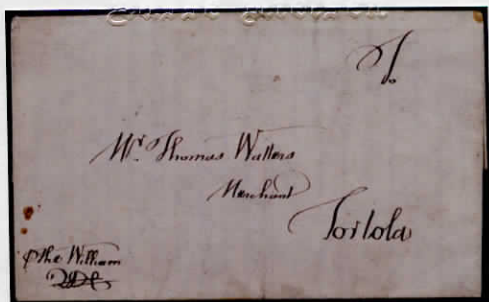 To
Mr. Thomas Watters
Merchant
Tortola
⅌ the William